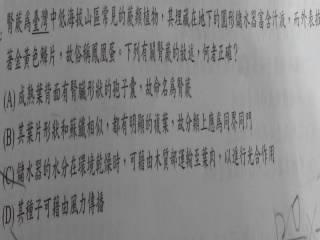 腎蕨為臺灣中低海拔山區常見的蕨類植物，其埋藏在地下的圓形儲水器富含汁液，而外表披
著金黃色鱗片，故俗稱鳳凰蛋。下列有關腎蕨的敘述，何者正確？
(A) 成熟葉背面有腎臟形狀的孢子囊，故命名為腎蕨
(B) 其葉片形狀和蘇鐵相似，都有明顯的複葉，故分類上應為同界同門
(C) 儲水器的水分在環境乾燥時，可藉由木質部運輸至葉內，以進行光合作用
(D) 其種子可藉由風力傳播